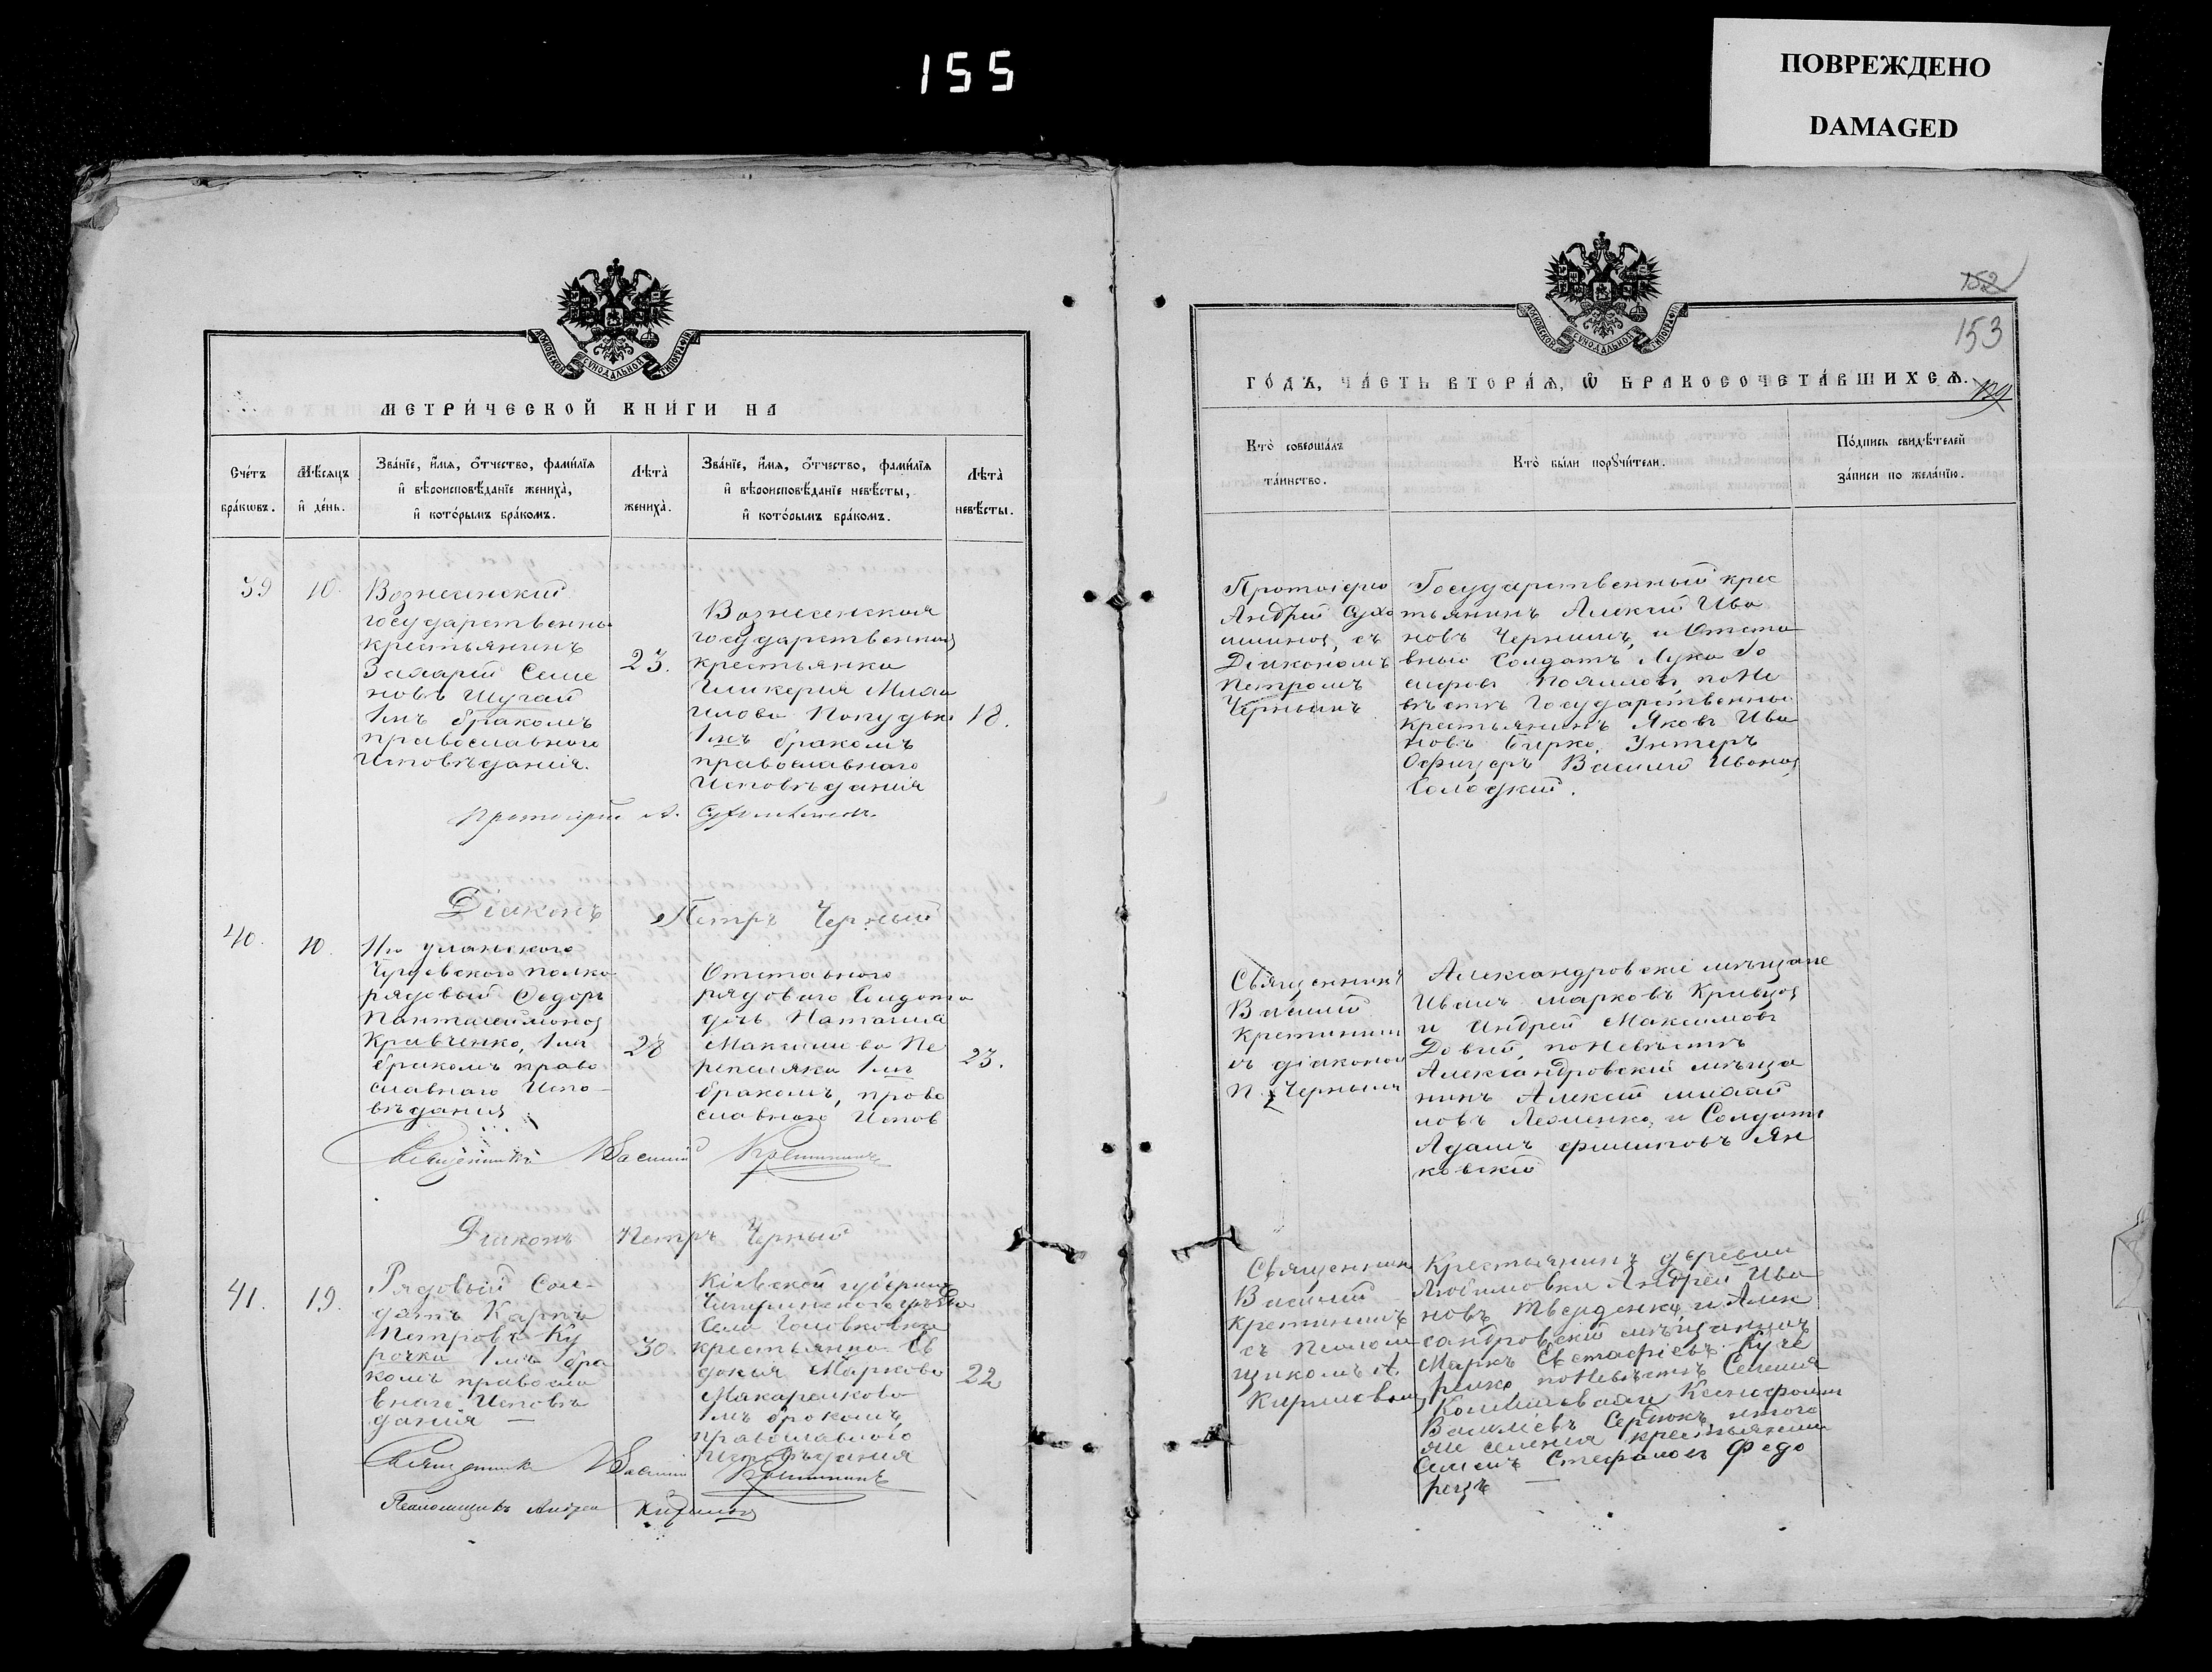 155
ПОВРЕЖДЕНО
DAMAGED
МОСКОВСКОЙ СѴНОДАЛЬНОЙ ТИПОГРАФІИ
МЕТРИ́ЧЕСКОЙ КНИ́ГИ НА
Сче́тъ бра́кѡвъ.
Мѣ́сяцъ и҆ де́нь.
Зва́нїе, и҆́мя, ѻ҆́тчество, фами́лїя
и҆ вѣроисповѣ́данїе жениха̀,
и҆ кото́рымъ бра́комъ.
Лѣта̀ жениха̀.
Зва́нїе, и҆́мя, ѻ҆́тчество, фами́лїя
и҆ вѣроисповѣ́данїе невѣ́сты,
и҆ кото́рымъ бра́комъ.
Лѣта̀ невѣ́сты.
39
10.
Вознесенский
государственны
крестьянинъ
Захарій Семе
новъ Шугай
1мъ бракомъ
православного
Исповѣданія.
23.
Вознесенская
государственная
крестьянка
Гликерія
1мъ бракомъ
православнаго
Исповѣданія
18.
Протоіерей А.
Діаконъ Петръ Черный
40.
10.
11го уланского
Чугуевского полка
рядовый Федоръ
Пантелеймоновъ
Кравченко, 1мъ
бракомъ право
славнаго Испо-
вѣданія
28
Отставного
рядового Солдата
дочь Наталія
Максимова Пе
1мъ
бракомъ, право
славного Испов
23.
Священникъ Василий Кретининъ
Діаконъ Петръ Черный
41.
19.
Рядовый Сол-
датъ Карпъ
Петровъ Ку
рочка 1мъ бра
комъ правосла
внаго Исповѣ
данія —
30.
Кіевской губерніи
Чигиринского уѣзда
Села Головковки
крестьянка Ев
докія Маркова
Макаренкова
1мъ бракомъ
православного
Исповѣданія
22
Священникъ Василий Кретининъ
Псаломщикъ Андрей Кириловъ
152
153
МОСКОВСКОЙ СѴНОДАЛЬНОЙ ТИПОГРАФІИ
ГО́ДЪ, ЧА́СТЬ ВТОРА́Ѧ, Ѡ҆ БРАКОСОЧЕТА́ВШИХСѦ.
Кто̀ соверша́лъ
та́инство.
Кто̀ бы́ли порꙋчи́тели.
По́дпись свидѣ́телей
за́писи по жела́нїю.
Протоіерей
Андрей Сухо
съ
Діакономъ
Петромъ
Чернымъ
Государственный крес
тьянинъ Алексій Ива
новъ и Отста
вный Солдатъ Лука
по Не
вѣстѣ Государственны
Крестьянинъ Яковъ Ива
новъ Бирко, Унтеръ
Офицеръ Василий Ивановъ
Солоцкий.
Священникъ
Василий
Кретининъ
съ діакономъ
П. Чернымъ
Александровскіе мѣщане
Иванъ Марковъ Кривцов
и Андрей Максимовъ
Довий, по Невѣстѣ
Александровскій мѣща
нинъ Алексій Михай
ловъ и Солдатъ
Адамъ Филиповъ Ян
ковскій
Священникъ
Василий
Кретининъ
съ Псалом
щикомъ А.
Кириловым
Крестьянинъ деревни
Любимовки Андрей Ива
новъ Тверденко, и Алек
сандровскій мѣщанинъ
Маркъ Евстафіевъ Куче
ренко по Невѣстѣ Селенія
Ксенофонтъ
Василіевъ Сердюкъ, и того
же селенія крестьянинъ
Семенъ Стефановъ Федо
рецъ —